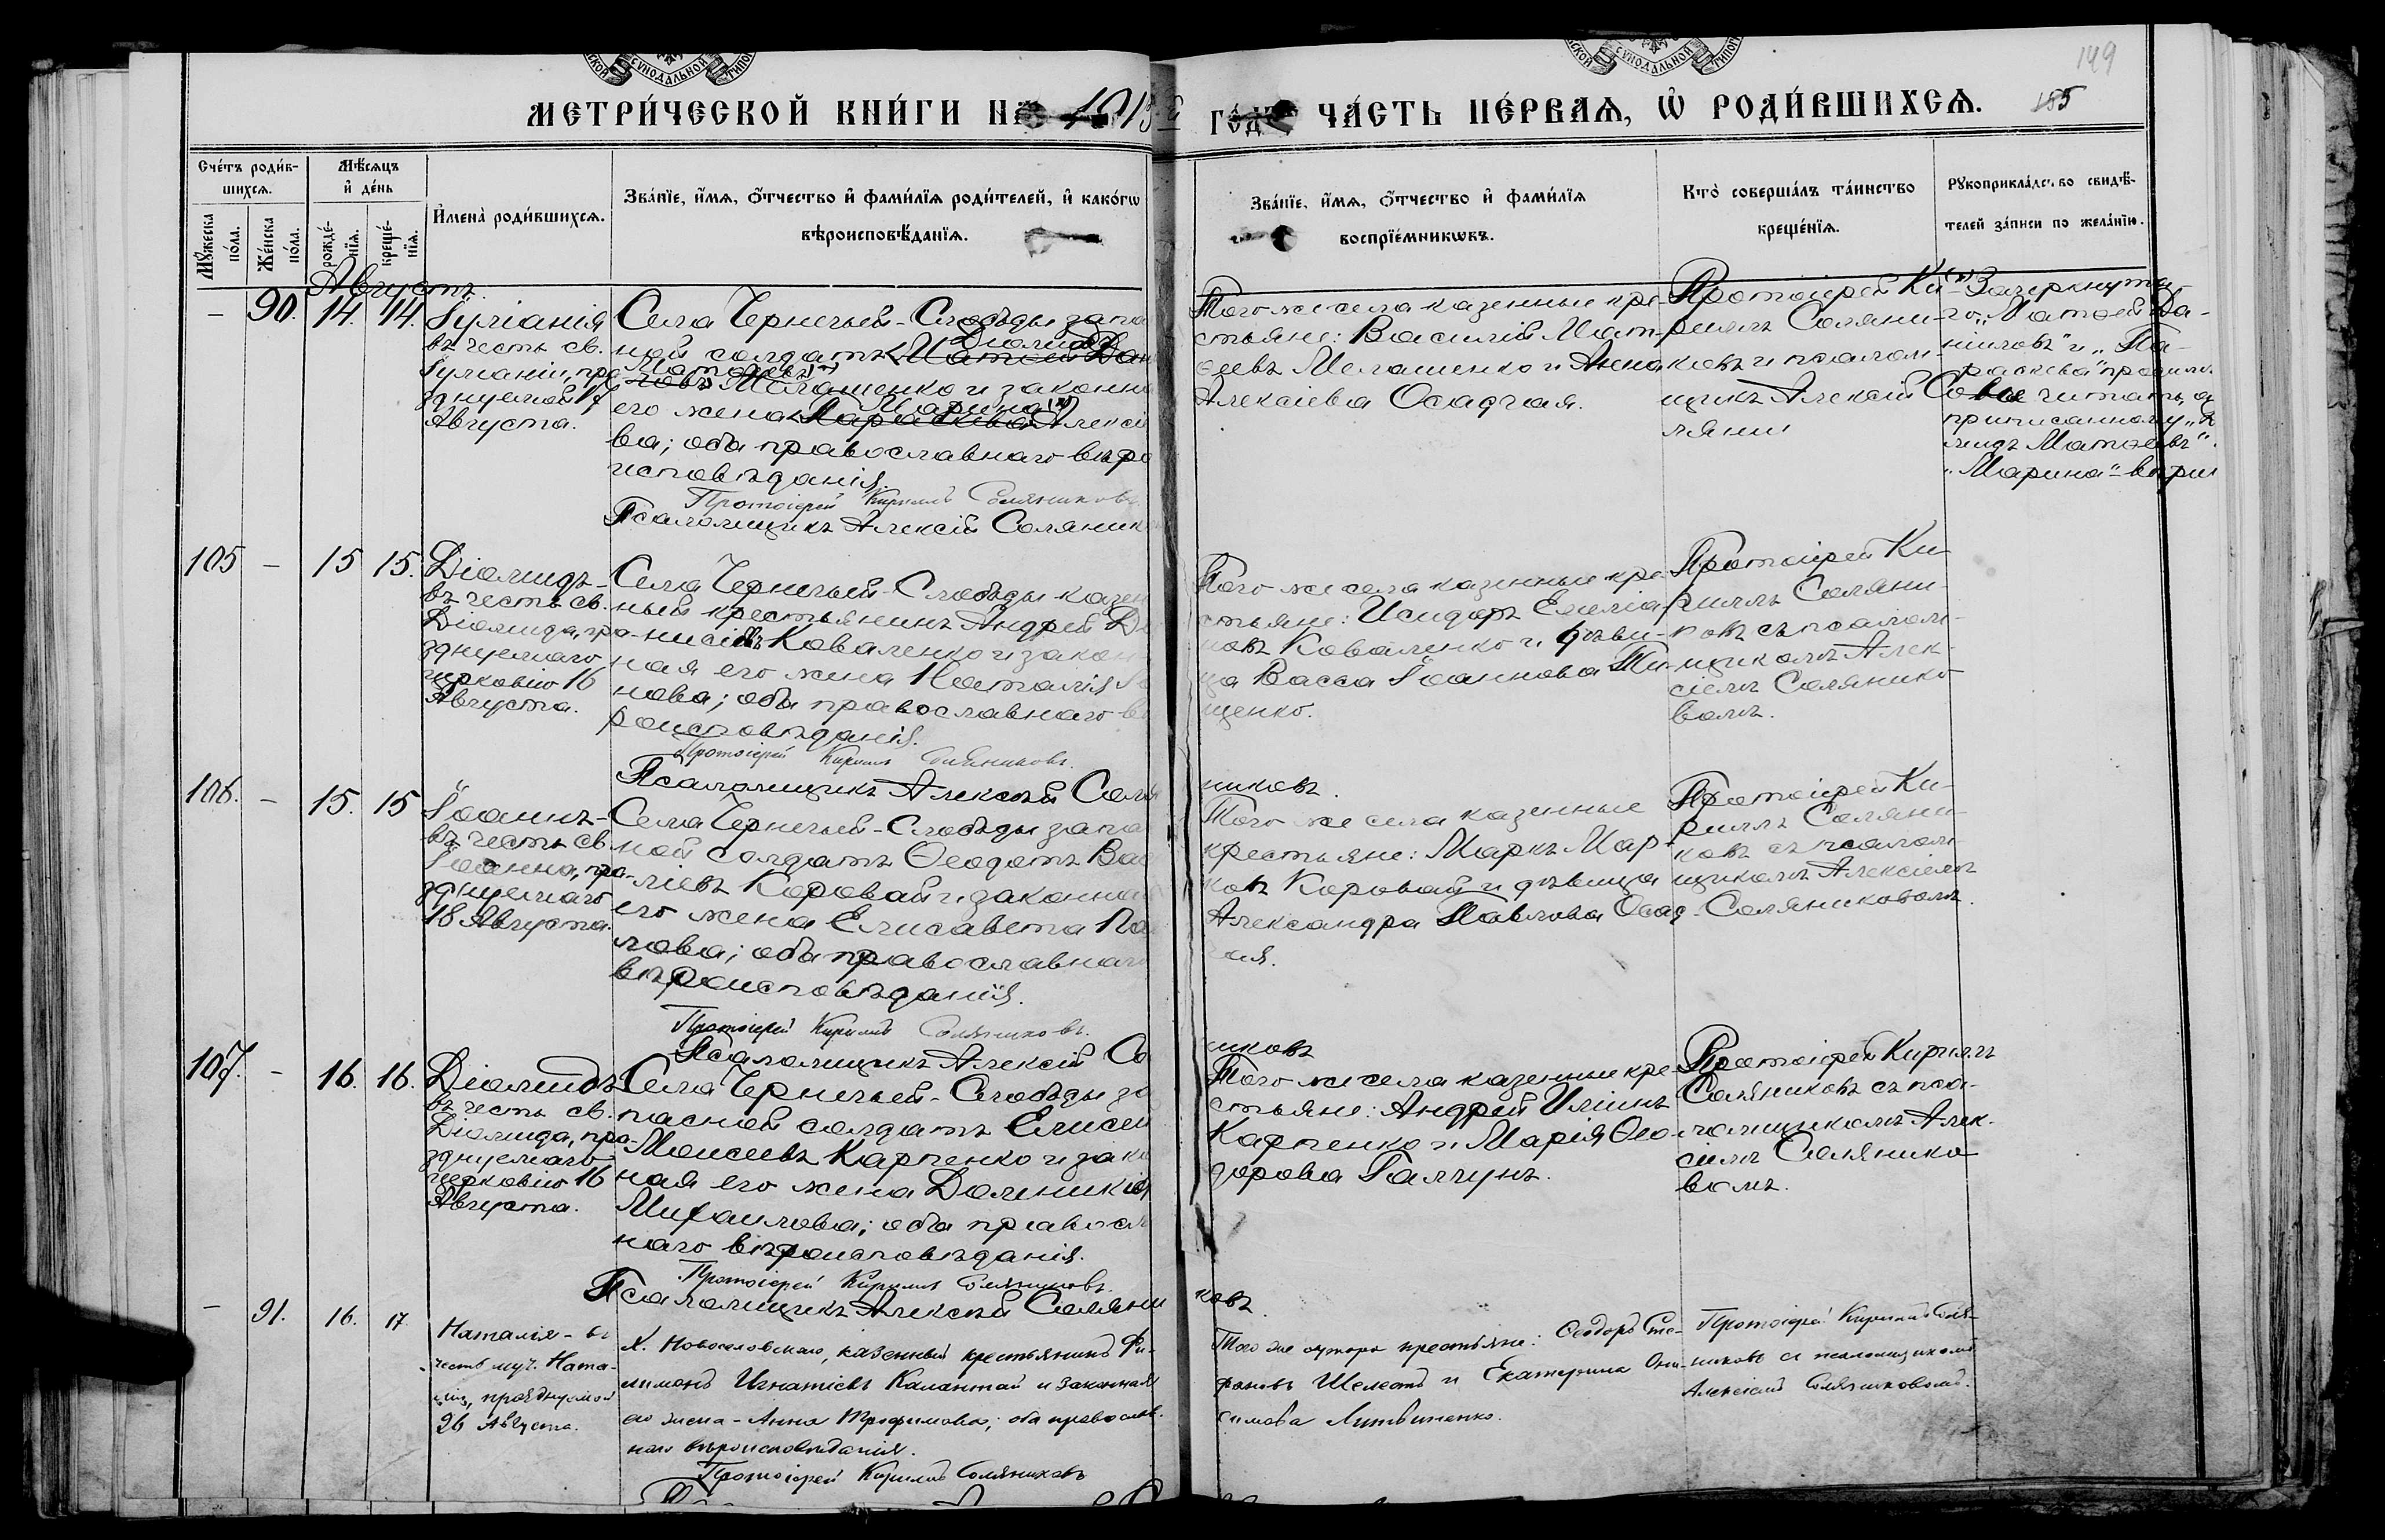 149
185
МЕТРИ́ЧЕСКОЙ КНИ́ГИ НА 1913
ГОДЪ ЧА́СТЬ ПЕ́РВАѦ, Ѡ҆ РОДИ́ВШИХСѦ.
Сче́тъ роди́в-
шихсѧ.
Мѣсѧцъ
и҆ де́нь
Мꙋ́жеска
по́ла.
Же́нска
по́ла.
рожде́-
нїѧ.
креще́-
нїѧ.
И҆мена̀ роди́вшихсѧ.
Зва́нїе, и҆́мѧ, ѻ҆́тчество и҆ фами́лїѧ роди́телей, и҆ како́гѡ
вѣроисповѣ́данїѧ.
Зва́нїе, и҆́мѧ, ѻ҆́тчество и҆ фами́лїѧ
воспрїе́мникѡвъ.
Кто̀ соверша́лъ та́инство
креще́нїѧ.
Рꙋкоприкла́дство свидѣ́-
телей за́писи по жела́нїю.
Августъ.
– 90. 14. 14.
Іуліанія
въ честь св.
Іуліаніи, пра-
зднуемой 17
Августа.
Села Чернечьей-Слободы запа
Діомидъ
ной солдатъ Матѳей Дан
Матѳеевъ
ловъ Мелашенко и законна
Марина
его жена Параскева Алексѣ
ва; оба православнаго вѣро
исповѣданія.
Протоіерей Кириллъ Соляниковъ
Псаломщикъ Алексій Соляник
Того же села казенные кре-
стьяне: Василій Мат-
ѳеевъ Мелашенко и Анна
Алексіева Осадчая.
Протоіерей Ки-
риллъ Соляни-
ковъ и псалом-
щикъ Алексій Со-
ляни
Зачеркнуто
го „Матѳей Да-
ниловъ" и „Па-
раскева"
не читать, а
приписанному
мидъ Матѳеевъ"
„Марина" - вѣри
105 – 15 15.
Діомидъ-
въ честь св.
Діомида, пра-
зднуемаго
церковію 16
Августа.
Села Чернечьей-Слободы казен
ный крестьянинъ Андрей Ді
нисіевъ Коваленко и закон
ная его жена Наталія Іо
нова; оба православнаго вѣ
роисповѣданія.
Протоіерей Кириллъ Соляниковъ.
Псаломщикъ Алексѣй Соля
никовъ.
Того же села казенные кре-
стьяне: Исидоръ Емеліа-
новъ Коваленко и дѣви-
ца Васса Іоаннова Ти-
щенко.
Протоіерей Ки-
риллъ Соляни-
ковъ съ псалом-
щикомъ Алек-
сіемъ Солянико-
вомъ.
106. – 15. 15
Іоаннъ-
въ честь св.
Іоанна, пра-
зднуемаго
18 Августа.
Села Чернечьей-Слободы запа
ной солдатъ Ѳеодотъ Вас
ліевъ Коровай и законна
его жена Елисавета Па
лова; оба православнаго
вѣроисповѣданія.
Протоіерей Кириллъ Соляниковъ.
Псаломщикъ Алексій Со
никовъ
Того же села казенные
крестьяне: Маркъ Мар-
ковъ Коровай и дѣвица
Александра Павлова Осад-
чая.
Протоіерей Ки-
риллъ Соляни-
ковъ съ псалом-
щикомъ Алексіемъ
Соляниковомъ.
107. – 16. 16.
Діомидъ
въ честь св.
Діомида, пра-
зднуемаго
церковію 16
Августа.
Села Чернечьей-Слободы за
пасной солдатъ Елисей
Моисеевъ Карпенко и зако
ная его жена Домникія
Михаилова; оба правосл
наго вѣроисповѣданія.
Протоіерей Кириллъ Соляниковъ.
Псаломщикъ Алексѣй Соляни
ковъ.
Того же села казенные кре-
стьяне: Андрей Иліинъ
Карпенко и Марія Ѳео-
дорова Галчунъ.
Протоіерей Кириллъ
Соляниковъ съ пса-
ломщикомъ Алек-
сіемъ Солянико
вомъ.
– 91. 16. 17.
Наталія - въ
честь муч. Ната-
ліи, празднуемой
26 Августа.
Х. Новоселовскаго, казенный крестьянинъ Фи-
лимонъ Игнатіевъ Калантай и законная
его жена - Анна Трофимова; оба православ-
наго вѣроисповѣданія.
Протоіерей Кириллъ Соляниковъ
Того же хутора крестьяне: Ѳеодоръ Сте-
фановъ Шелестъ и Екатерина Они-
симова Литвиненко.
Протоіерей Кириллъ Соля-
никовъ съ псаломщикомъ
Алексіемъ Соляниковомъ.